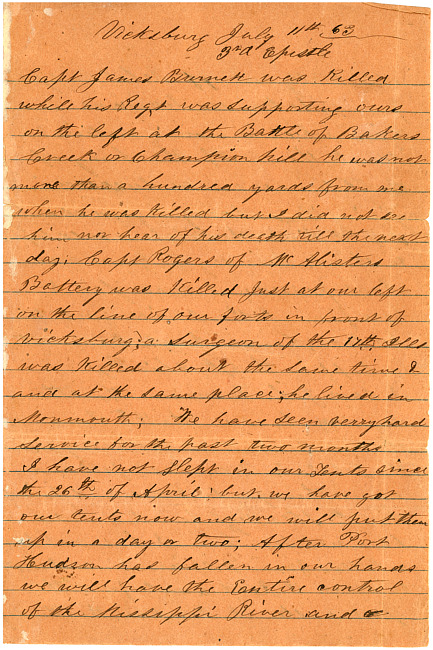 Vicksburg July 11th 63
3rd Epistle
Capt James Burnett was Killed
while his Regt was supporting ours
on the left at the Battle of Bakers
Creek or Champion hill he was not
more than a hundred yards from me
when he was Killed but I did not see
him nor hear of his death till the next
day; Capt Rogers of Mc Alisters
Battery was Killed Just at our left
on the line of our forts in front of
Vicksburg; a Surgeon of the 17th Ills
was Killed about the same time &
and at the same place; he lived in
Monmouth; We have seen verry hard
Service for the past two months
I have not Slept in our Tents since
the 26th of April but we have got
our tents now and we will put them
up in a day or two; After Port
Hudson has fallen in our hands
we will have the Entire control
of the Missippi River and